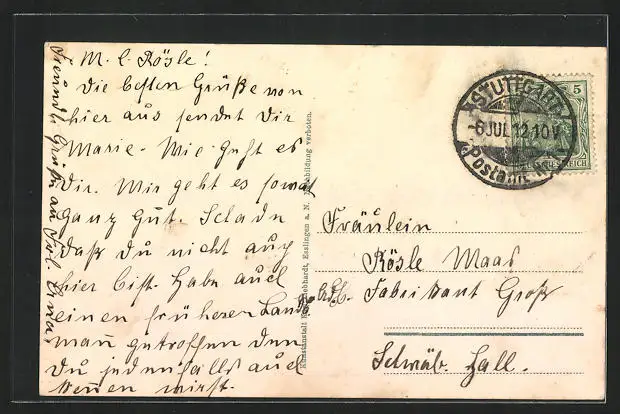 M. l. Rösle!
Die besten Grüße von
hier aus sendet Dir
Marie. Wie geht es
Dir. Mir geht es soweit
ganz gut. Schade
daß du nicht auch
hier bist. Habe auch
einen früheren Lands
mann getroffen den
Du jedenfalls auch
kennen wirst.
Freundl. Grüße an Frl. Erna.
Kunstanstalt Gebhardt, Esslingen a. N. Nachbildung verboten.
STUTTGART
-6 JUL 12.10V
Postamt
5
REICH
Fräulein
Rösle Maas
Fabrikant Groß
Schwäb. Hall.